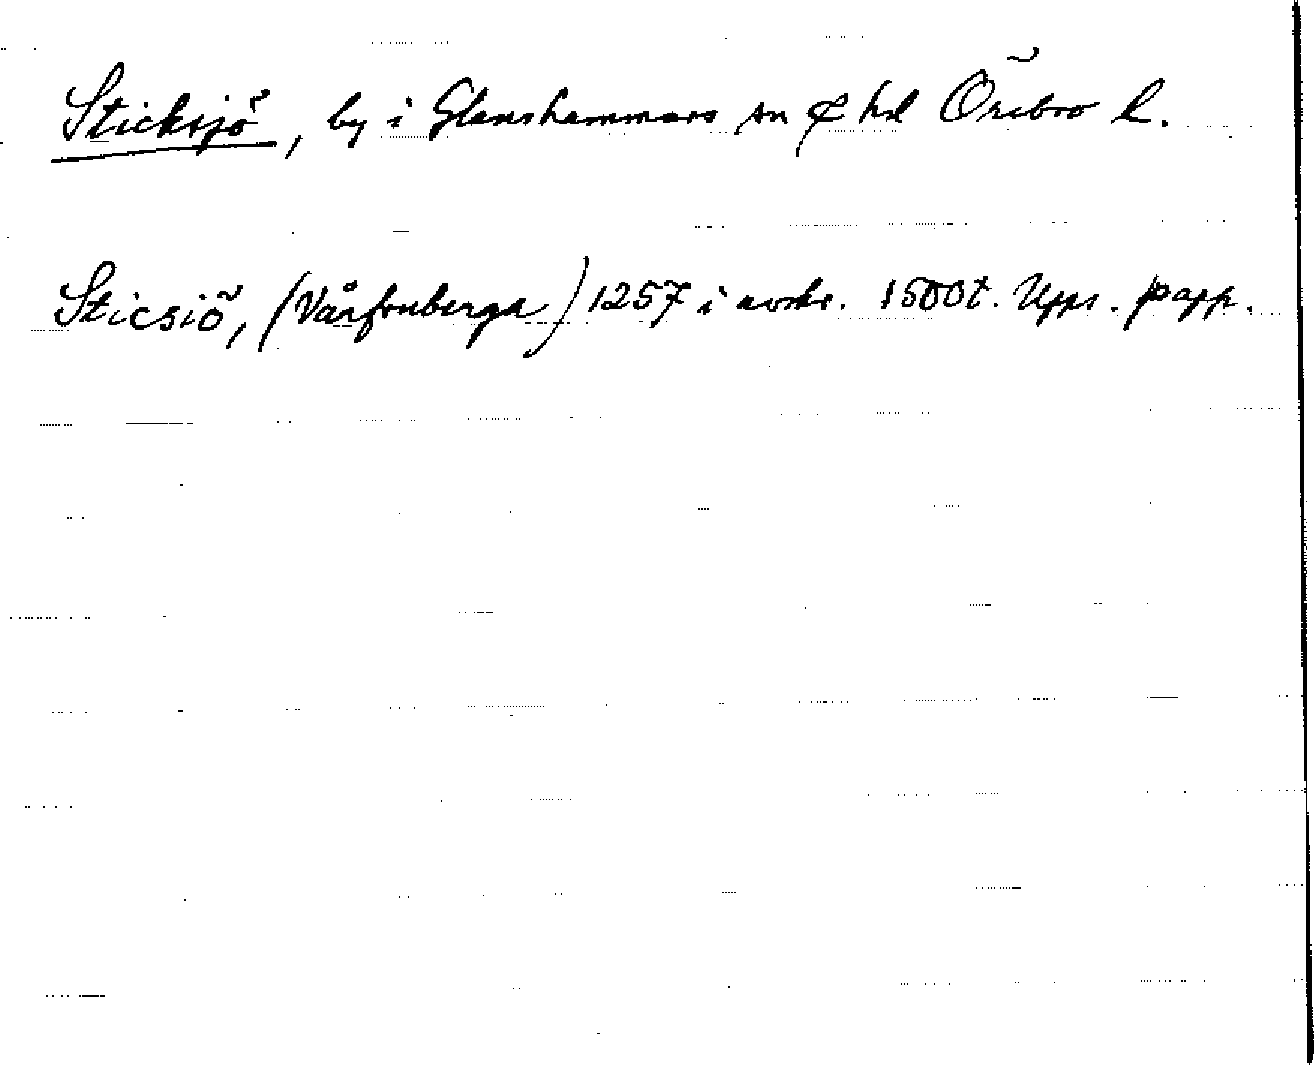 Sticksjö, by i Glanshammars sn & hd Örebro l.
Sticsiö, (Vårfruberga) 1257 i avskr. 1500t. Upps. papp.